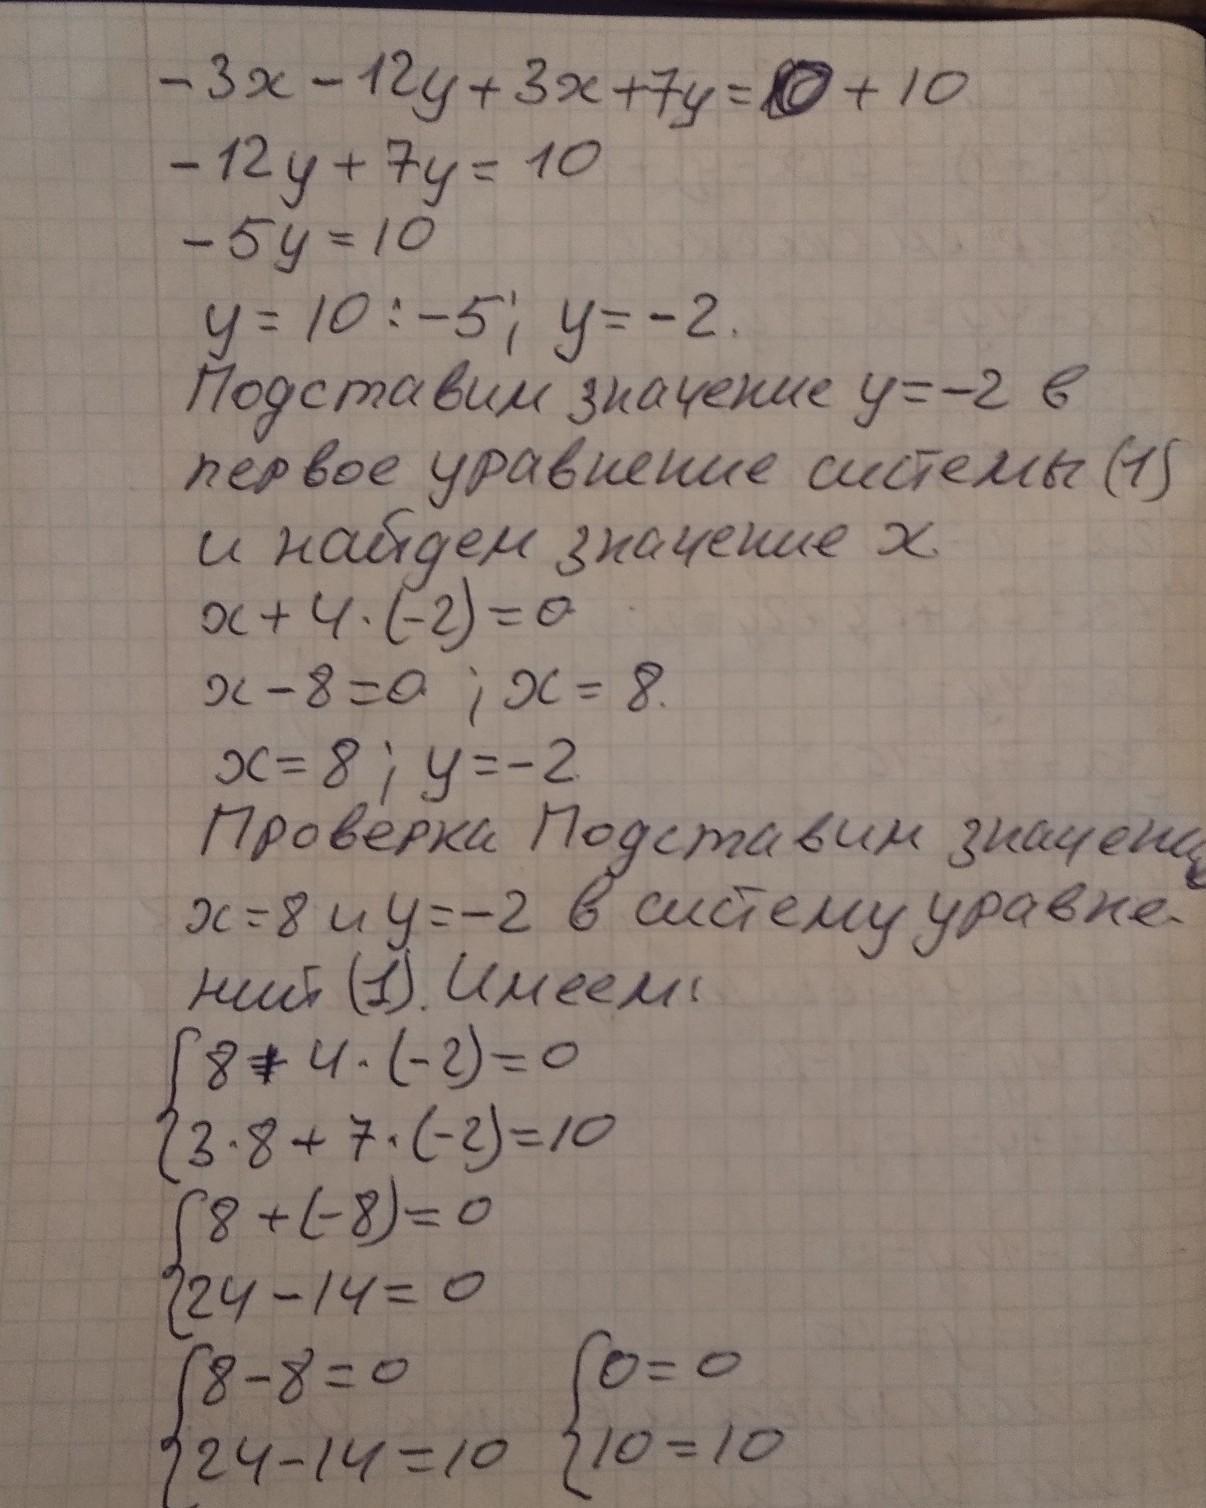 -3x-12y+3x+7y=0+10
-12y+7y=10
-5y=10
y=10:-5; y=-2.
Подставим значение y=-2 в
первое уравнение системы (1)
и найдем значение x.
x+4·(-2)=0
x-8=0 ; x=8.
x=8; y=-2.
Проверка Подставим значени
x=8 и y=-2 в систему уравне-
ний (1). Имеем:
{8+4·(-2)=0
{3·8+7·(-2)=10
{8+(-8)=0
{24-14=0
{8-8=0 {0=0
{24-14=10 {10=10